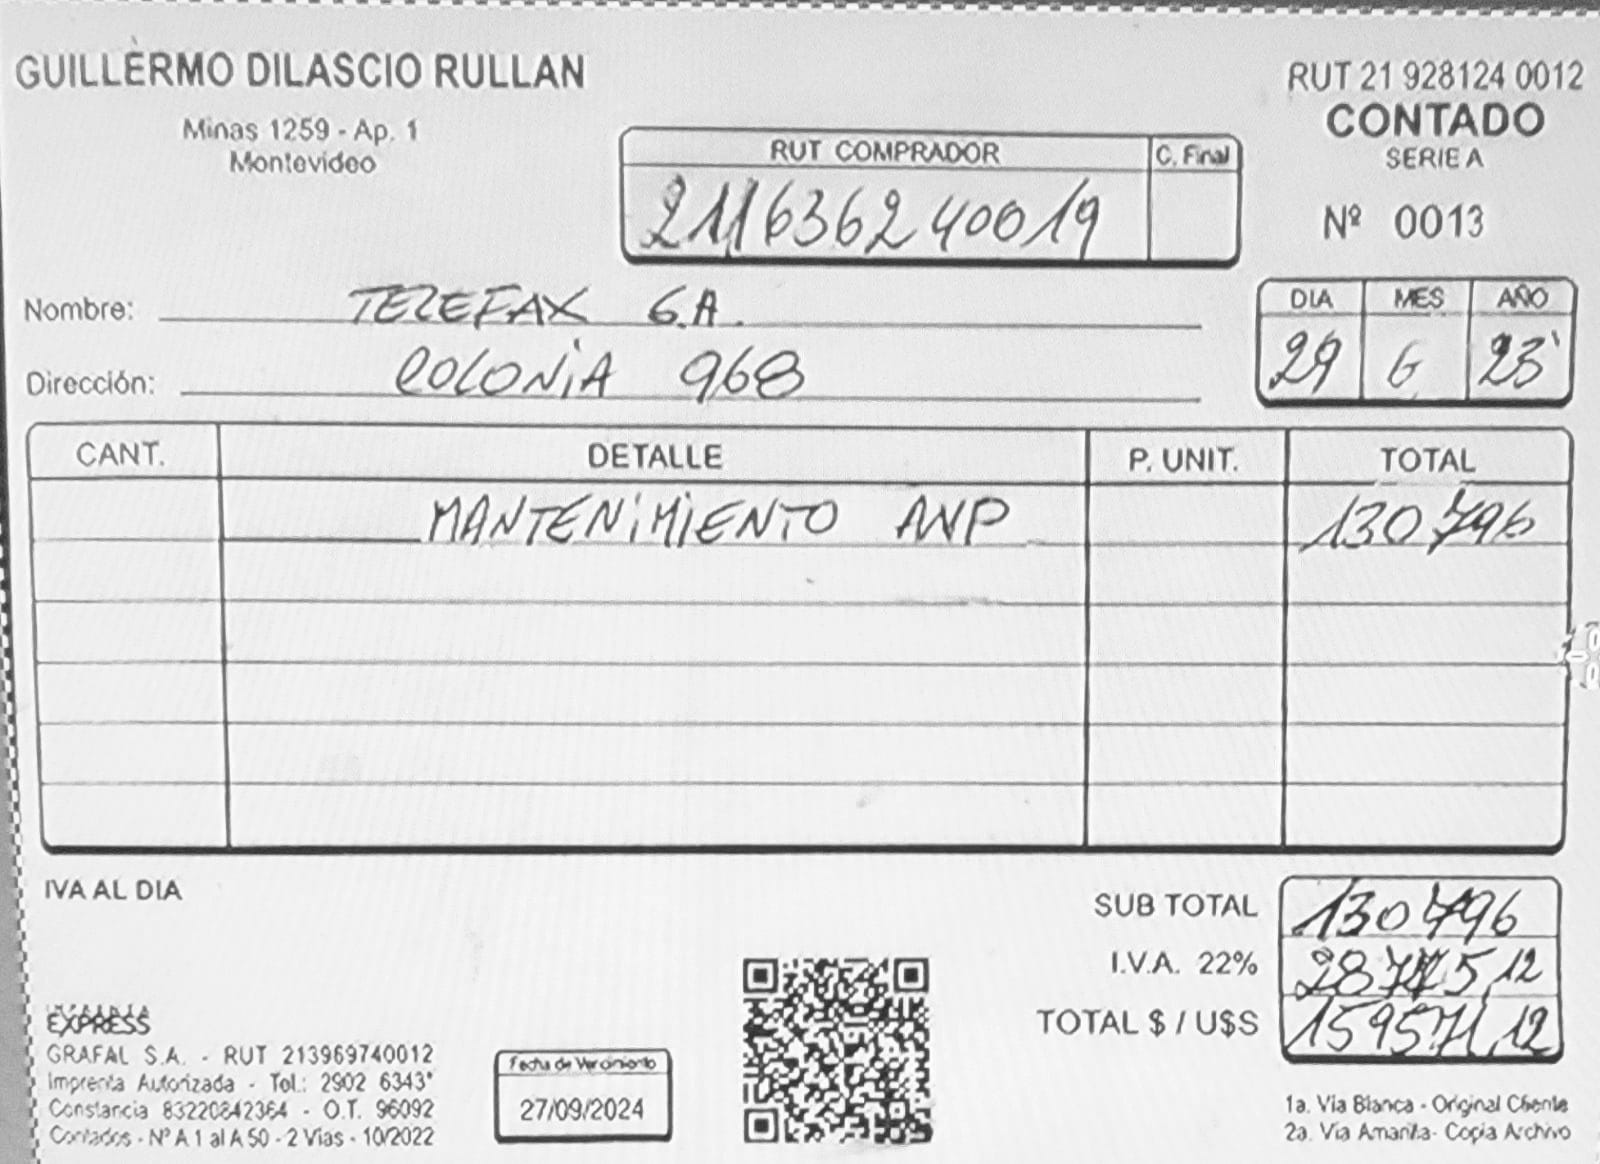 GUILLERMO DILASCIO RULLAN
Minas 1259 - Ap. 1
Montevideo
RUT 21 928124 0012
CONTADO
SERIE A
Nº 0013
RUT COMPRADOR
C. Final
211636240019
DIA MES AÑO
29 6 23
Nombre: TELEFAX S.A.
Dirección: COLONIA 968
CANT. DETALLE P. UNIT. TOTAL
MANTENIMIENTO ANP 130796
IVA AL DIA
SUB TOTAL 130796
I.V.A. 22% 28775,12
TOTAL $ / U$S 159571,12
EXPRESS
GRAFAL S.A. - RUT 213969740012
Imprenta Autorizada - Tel.: 2902 6343*
Constancia 83220842364 - O.T. 96092
Contados - Nº A 1 al A 50 - 2 Vias - 10/2022
Fecha de Vencimiento
27/09/2024
1a. Vía Blanca - Original Cliente
2a. Vía Amarilla- Copia Archivo